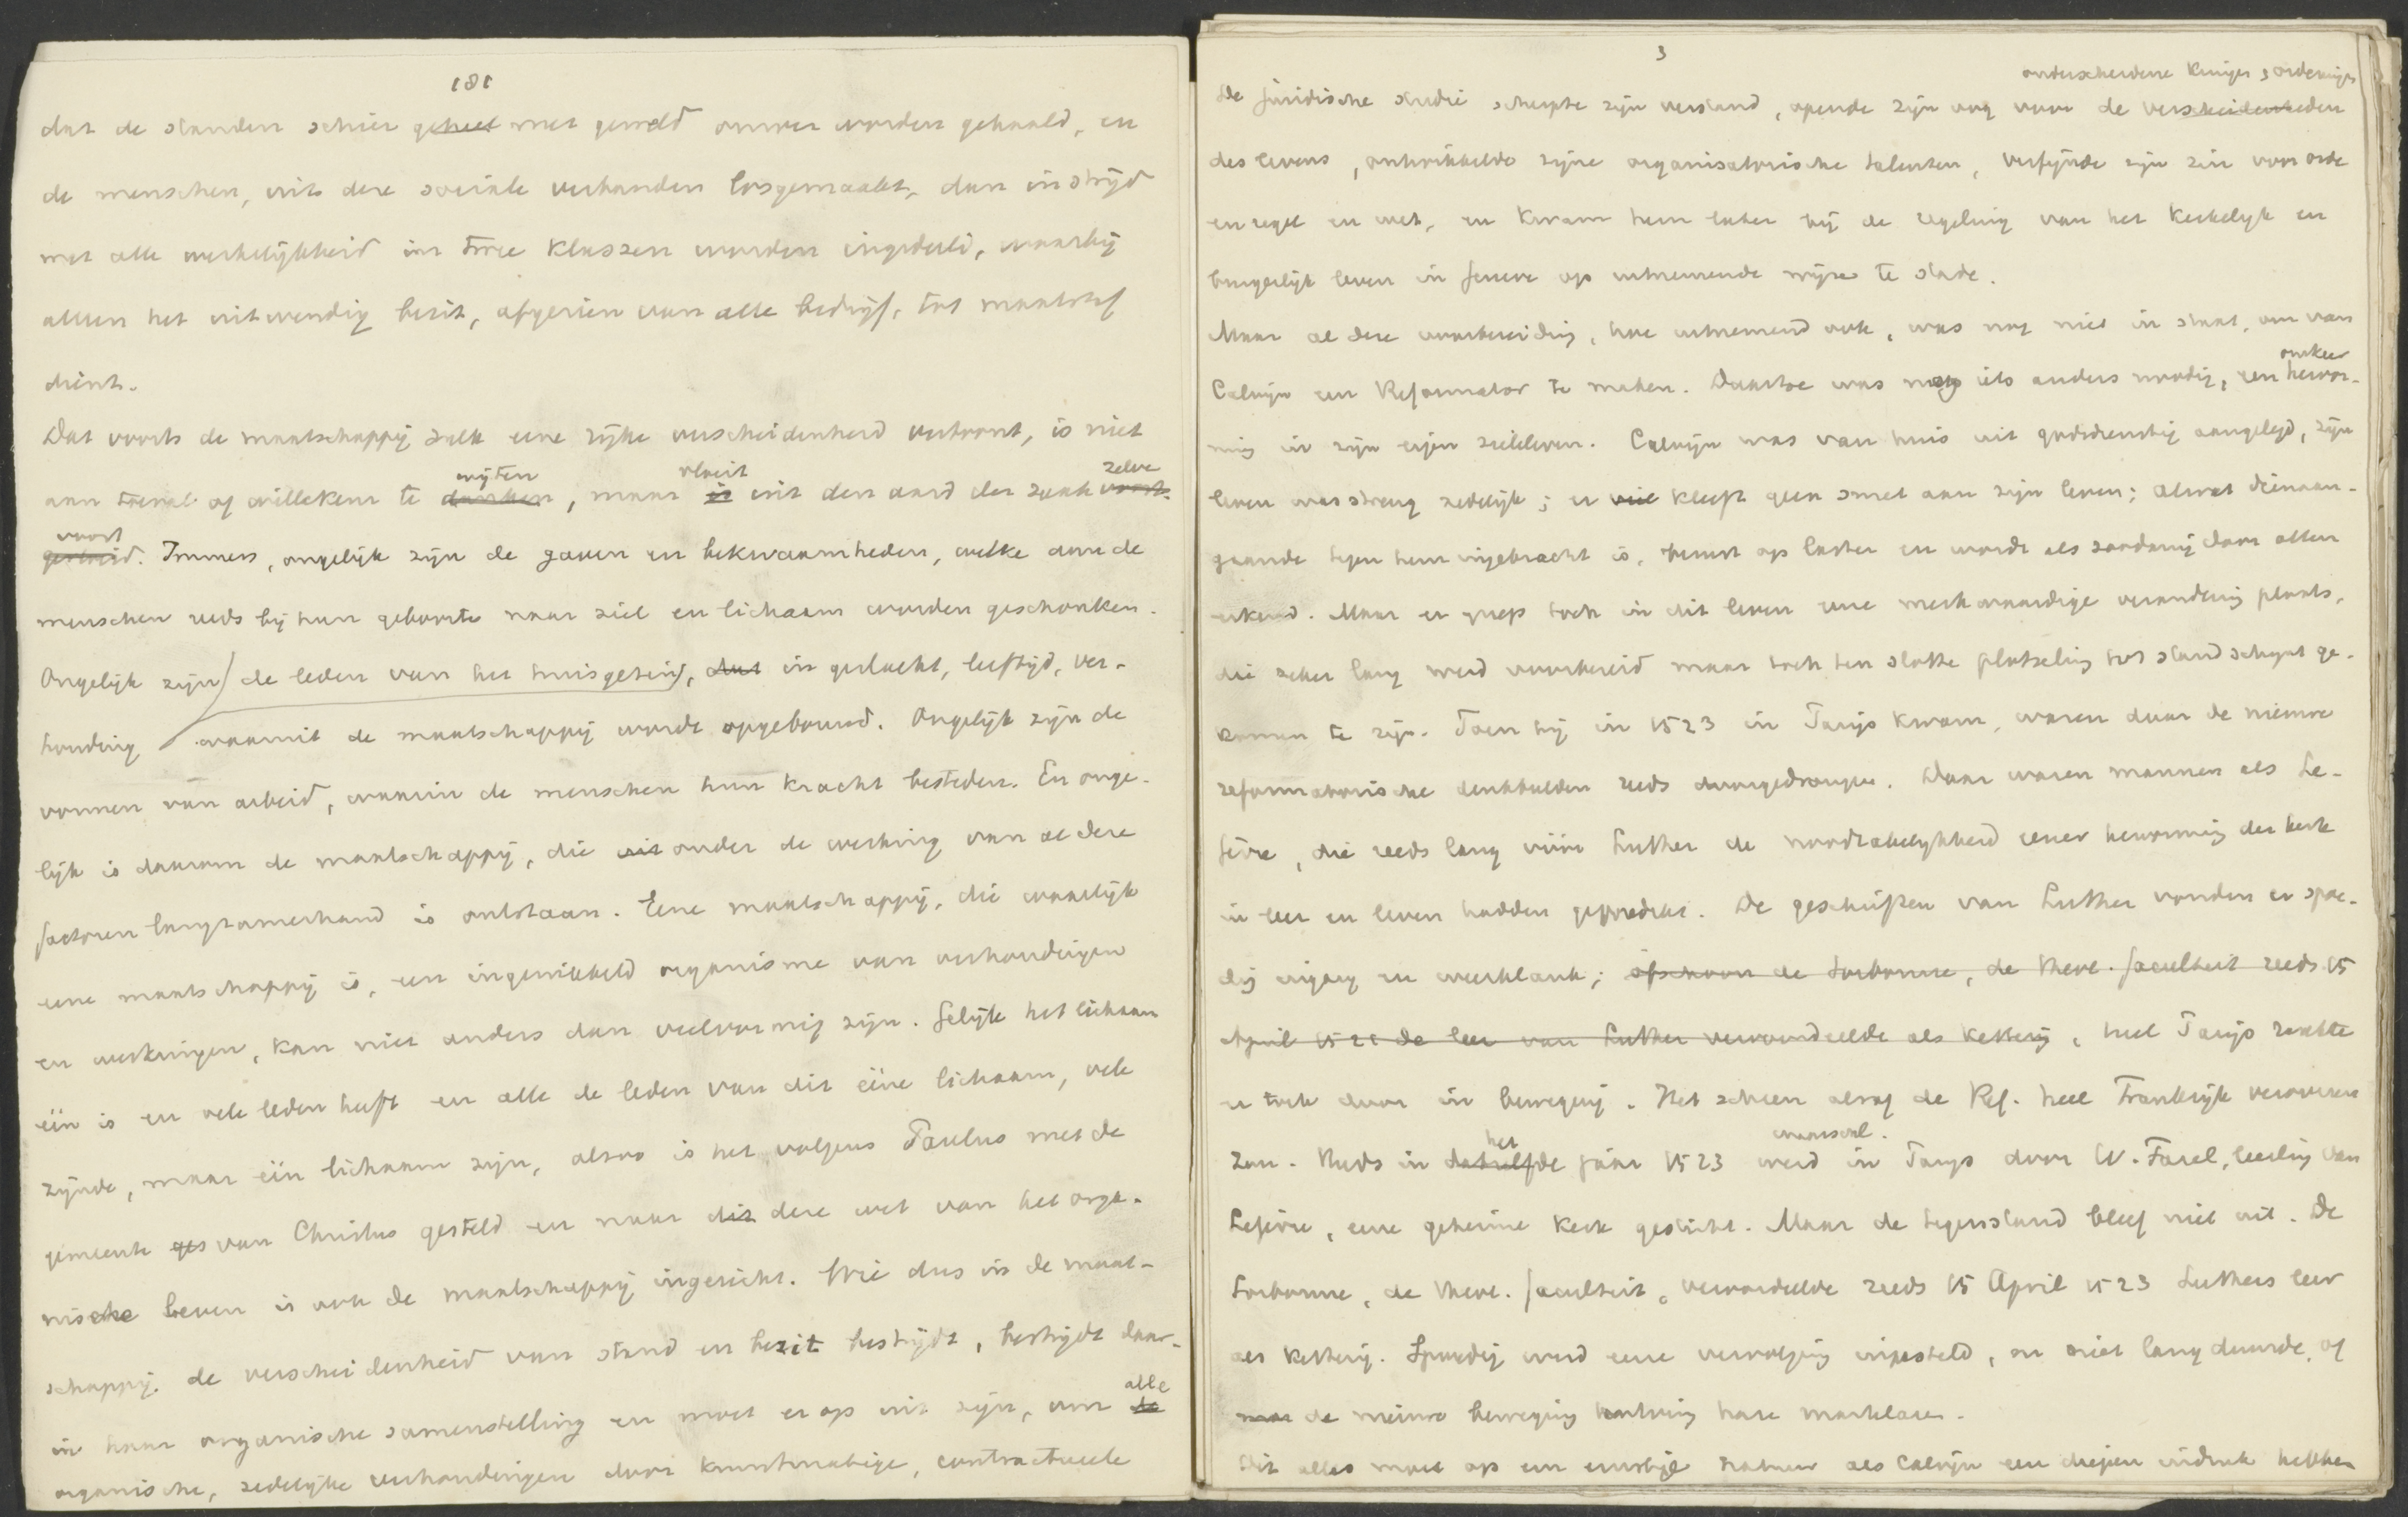 181
dat de standen schier geheel met geweld omver worden gehaald, en
de menschen, uit deze sociale verbanden losgemaakt, dan in strijd
met alle werkelijkheid in twee klassen worden ingedeeld, waarbij
alleen het uitwendig bezit, afgezien van alle bedrijf, tot maatstaf
dient.
Dat voorts de maatschappij zulk eene rijke verscheidenheid vertoont, is niet
wijten vloeit zelve
aan toeval of willekeur te danken, maar is uit den aard der zaak voort-
voort
gevloeid. Immers, ongelijk zijn de gaven en bekwaamheden, welke aan de
menschen reeds bij hun geboorte naar ziel en lichaam worden geschonken.
Ongelijk zijn de leden van het huisgezin, dat in geslacht, leeftijd, ver-
houding waaruit de maatschappij wordt opgebouwd. Ongelijk zijn de
vormen van arbeid, waarin de menschen hun kracht besteden. En onge-
lijk is daarom de maatschappij, die uit onder de werking van al deze
factoren langzamerhand is ontstaan. Eene maatschappij, die waarlijk
eene maatschappij is, een ingewikkeld organisme van verhoudingen
en werkingen, kan niet anders dan veelvormig zijn. Gelijk het lichaam
één is en vele leden heeft en alle de leden van dit ééne lichaam, vele
zijnde, maar één lichaam zijn, alzoo is het volgens Paulus met de
gemeente ges van Christus gesteld en naar dit deze wet van het orga-
nische leven is ook de maatschappij ingericht. Wie dus in de maat-
schappij de verscheidenheid van stand en bezit bestrijdt, bestrijdt daar-
alle
in haar organische samenstelling en moet er op uit zijn, om de
organische, zedelijke verhoudingen door kunstmatige, contractueele
3
onderscheidene kringen, ordeningen
De juridische studie scherpte zijn verstand, opende zijn oog voor de verscheidenheden
des levens, ontwikkelde zijne organisatorische talenten, verfijnde zijn zin voor orde
en regel en wet, en kwam hem later bij de regeling van het kerkelijk en
burgerlijk leven in Geneve op uitnemende wijze te stade.
Maar al deze voorbereiding, hoe uitnemend ook, was nog niet in staat, om van
omkeer
Calvijn een Reformator te maken. Daartoe was nog iets anders noodig, een hervor-
ming in zijn eigen zieleleven. Calvijn was van huis uit godsdienstig aangelegd, zijn
leven was streng zedelijk; er viel kleeft geen smet aan zijn leven; alwat dienaan-
gaande tegen hem ingebracht is, berust op laster en wordt als zoodanig door allen
erkend. Maar er greep toch in dit leven eene merkwaardige verandering plaats,
die zeker lang werd voorbereid maar toch ten slotte plotseling tot stand schijnt ge-
komen te zijn. Toen hij in 1523 in Parijs kwam, waren daar de nieuwe
reformatorische denkbeelden reeds doorgedrongen. Daar waren mannen als Le-
fèvre, die reeds lang vóór Luther de noodzakelijkheid eener hervorming der kerk
in leer en leven hadden gepredikt. De geschriften van Luther vonden er spoe-
dig ingang en weerklank; ofschoon de Sorbonne, de theol. faculteit reeds 15
April 1521 de leer van Luther veroordeelde als ketterij, heel Parijs raakte
er toch door in beweging. Het scheen alsof de Ref. heel Frankrijk veroveren
het waarschl.
zou. Reeds in datzelfde jaar 1523 werd in Parijs door W. Farel, leerling van
Lefèvre, eene geheime kerk gesticht. Maar de tegenstand bleef niet uit. De
Sorbonne, de theol. faculteit, veroordeelde reeds 15 April 1523 Luthers leer
als ketterij. Spoedig werd eene vervolging ingesteld, en niet lang duurde, of
de nieuwe beweging ontving hare martelaren.
Dit alles moet op een ernstige natuur als Calvijn een diepen indruk hebben